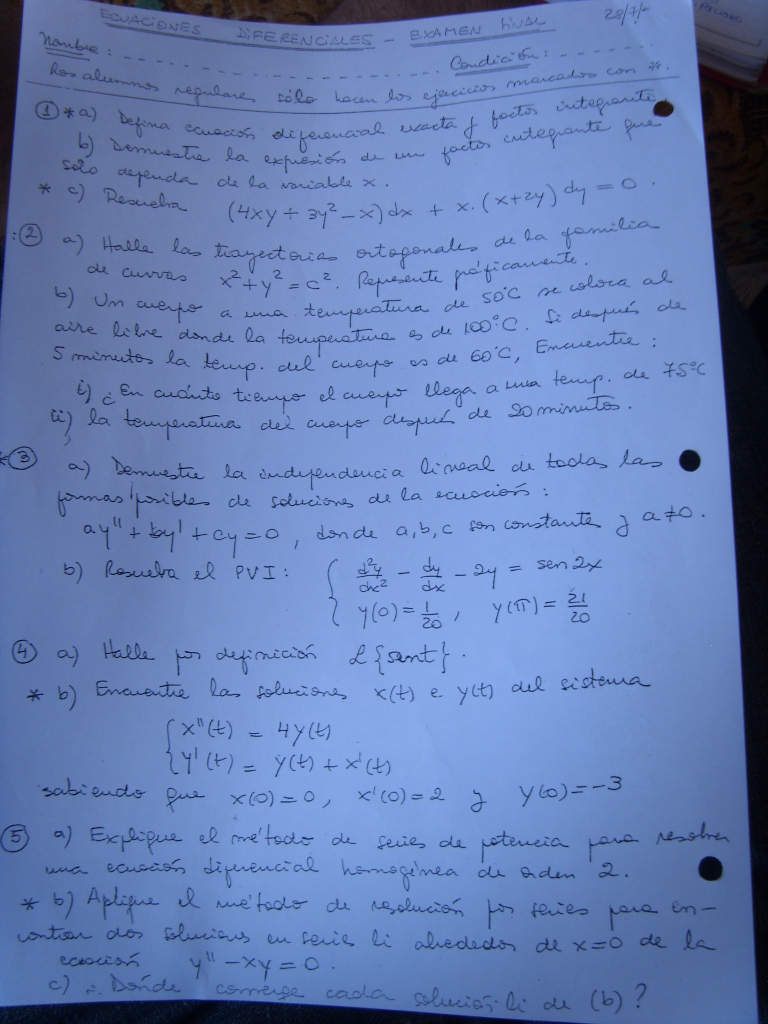 ECUACIONES DIFERENCIALES - EXAMEN FINAL
Nombre: - - - - - - - - - - - - - - - - - - - Condición: - - - - - - -
Los alumnos regulares sólo hacen los ejercicios marcados con *.
① * a) Defina ecuación diferencial exacta y factor integrante
b) Demuestre la expresión de un factor integrante que
sólo dependa de la variable x.
* c) Resuelva (4xy + 3y² - x)dx + x.(x+2y)dy = 0.
② a) Halle las trayectorias ortogonales de la familia
de curvas x² + y² = c². Represente gráficamente.
b) Un cuerpo a una temperatura de 50°C se coloca al
aire libre donde la temperatura es de 100°C. Si después de
5 minutos la temp. del cuerpo es de 60°C, Encuentre:
i) ¿En cuánto tiempo el cuerpo llega a una temp. de 75°C
ii) la temperatura del cuerpo después de 20 minutos.
* ③ a) Demuestre la independencia lineal de todas las
formas posibles de soluciones de la ecuación:
ay'' + by' + cy = 0, donde a, b, c son constantes y a ≠ 0.
b) Resuelva el PVI: { d²y/dx² - dy/dx - 2y = sen 2x
y(0) = 1/20, y(π) = 21/20
④ a) Halle por definición ℒ{sent}.
* b) Encuentre las soluciones x(t) e y(t) del sistema
{ x''(t) = 4y(t)
y'(t) = y(t) + x'(t)
sabiendo que x(0) = 0, x'(0) = 2 y y(0) = -3
⑤ a) Explique el método de series de potencia para resolver
una ecuación diferencial homogénea de orden 2.
* b) Aplique el método de resolución por series para en-
contrar dos soluciones en series li alrededor de x=0 de la
ecuación y'' - xy = 0.
c) ¿Dónde converge cada solución li de (b)?